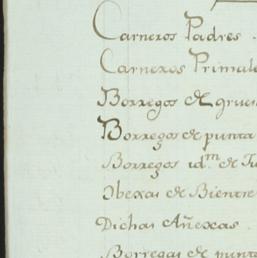 Carneros Padres .
Carneros Primale
Borregos de grues
Borregos de punta
Borregos idm de Tu
Obexas de Bientre
Dichas Añexas .
Borregas de punta